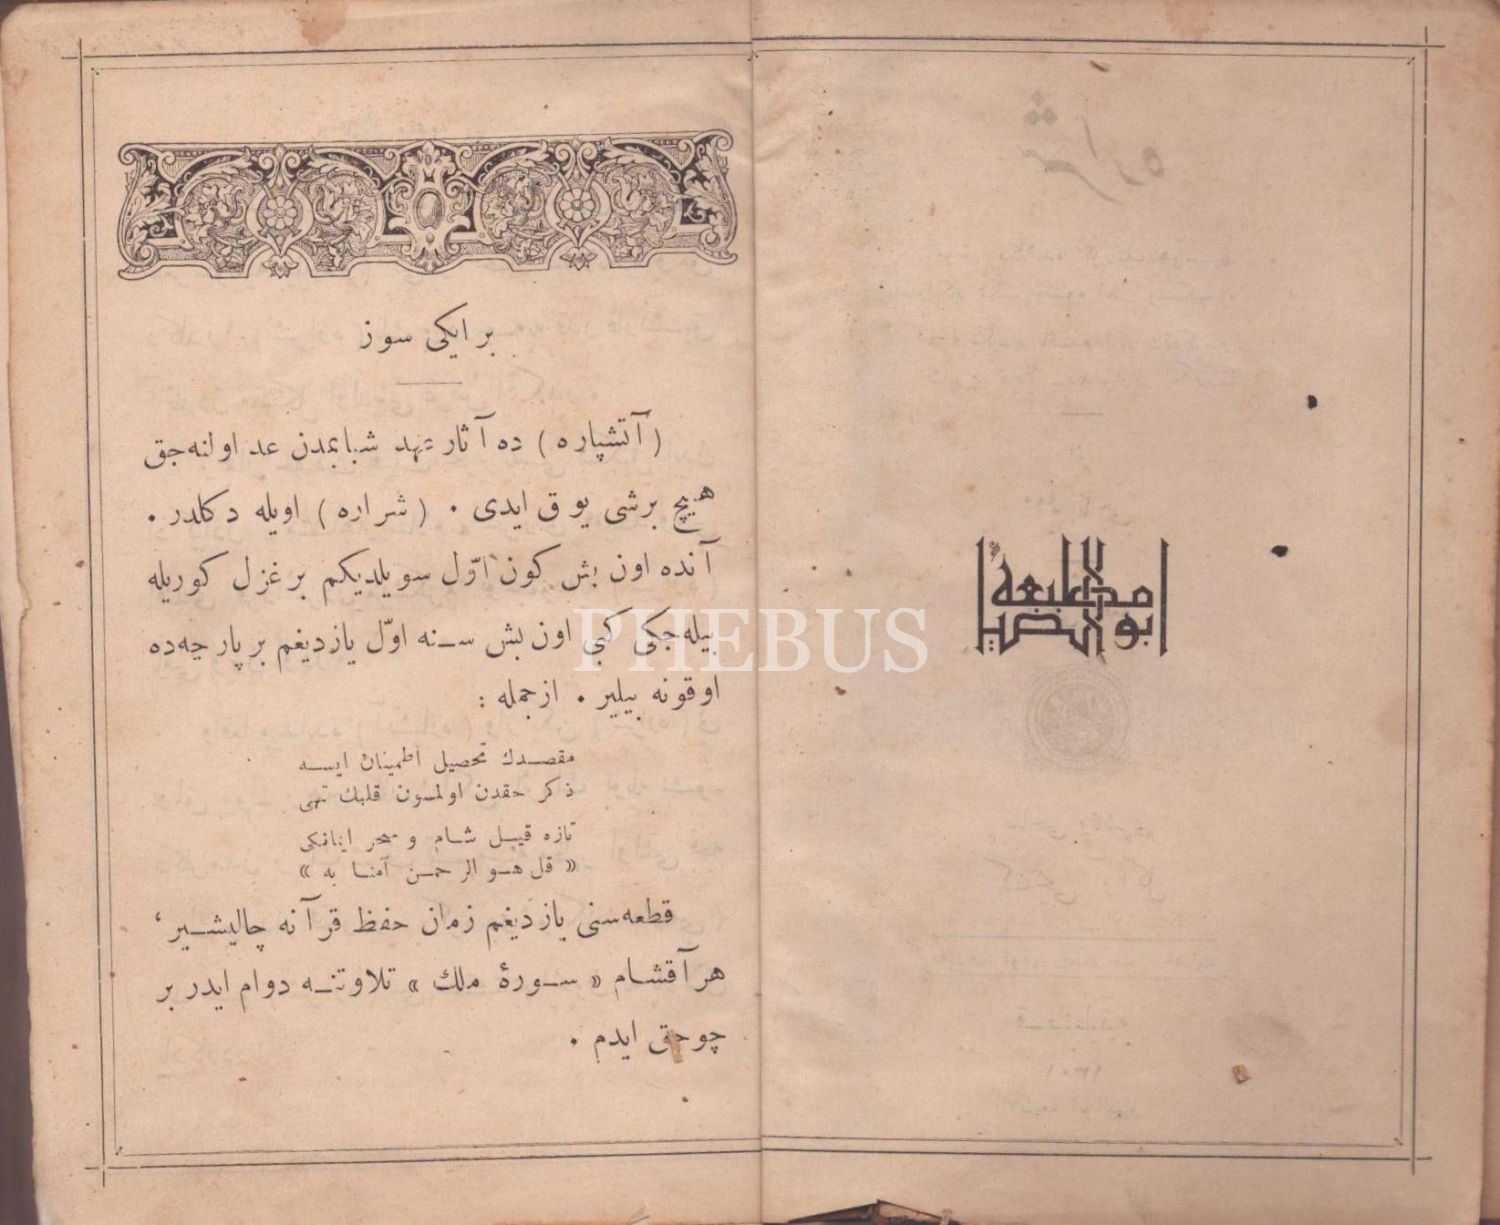 مطبعهٔ
ابوالضیا
بر ایکی سوز
( آتشپاره ) ده آثار عهد شبابمدن عد اولنه‌جق
هیچ برشی یوق ایدی . ( شراره ) اویله دکلدر .
آنده اون بش کون اوّل سویلدیکم بر غزل کوریله
بیله‌جکی کبی اون بش سنه اوّل یازدیغم بر پارچه‌ده
اوقونه بیلیر . از جمله :
مقصدك تحصیل اطمینان ایسه
ذکر حقدن اولمسون قلبك تهی
تازه قیل شام و سحر ایمانکی
« قل هو الرحمن آمنا به »
قطعه‌سنی یازدیغم زمان حفظ قرآنه چالیشیر ،
هر آقشام « سورهٔ ملك » تلاوتنه دوام ایدر بر
چوجق ایدم .
PHEBUS